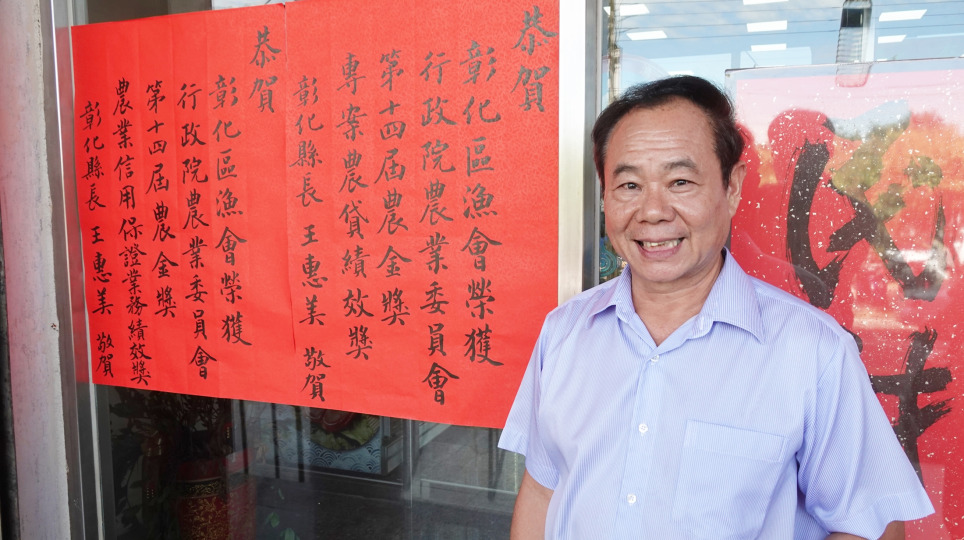 恭賀
彰化區漁會榮獲
行政院農業委員會
第十四屆農金獎
專案農貸績效獎
彰化縣長 王惠美 敬賀
恭賀
彰化區漁會榮獲
行政院農業委員會
第十四屆農金獎
農業信用保證業務績效獎
彰化縣長 王惠美 敬賀